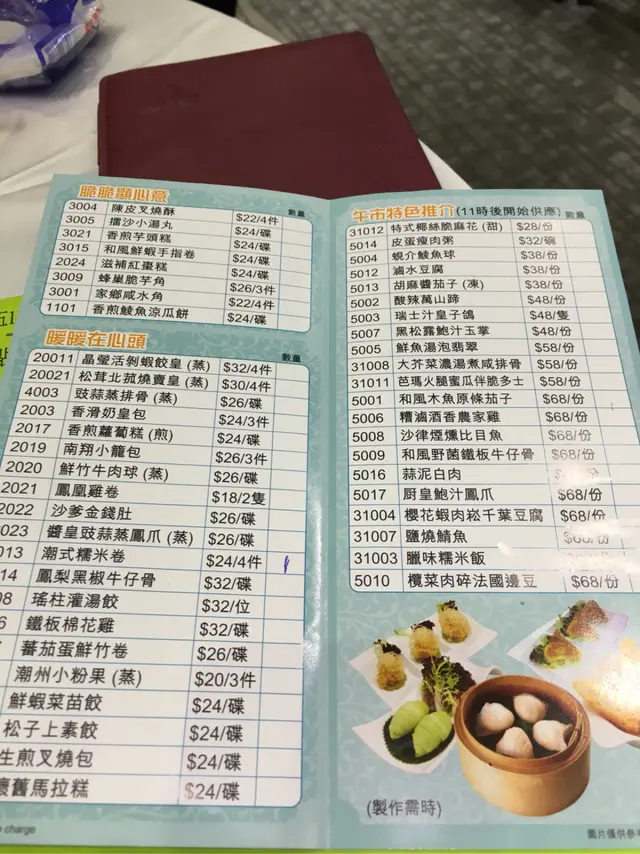 脆脆顯心意
數量
3004 陳皮叉燒酥 $22/4件
3005 擂沙小湯丸 $24/碟
3021 香煎芋頭糕 $24/碟
3015 和風鮮蝦手指卷 $24/碟
2024 滋補紅棗糕 $24/碟
3009 蜂巢脆芋角 $26/3件
3001 家鄉咸水角 $22/4件
1101 香煎鯪魚涼瓜餅 $24/碟
暖暖在心頭
數量
20011 晶瑩活剝蝦餃皇 (蒸) $32/4件
20021 松茸北菰燒賣皇 (蒸) $30/4件
4003 豉蒜蒸排骨 (蒸) $26/碟
2003 香滑奶皇包 $24/3件
2017 香煎蘿蔔糕 (煎) $24/碟
2019 南翔小籠包 $26/3件
2020 鮮竹牛肉球 (蒸) $26/碟
2021 鳳凰雞卷 $18/2隻
2022 沙爹金錢肚 $26/碟
023 醬皇豉蒜蒸鳳爪 (蒸) $26/碟
013 潮式糯米卷 $24/4件
14 鳳梨黑椒牛仔骨 $32/碟
08 瑤柱灌湯餃 $32/位
鐵板棉花雞 $32/碟
蕃茄蛋鮮竹卷 $26/碟
潮州小粉果 (蒸) $20/3件
鮮蝦菜苗餃 $24/碟
松子上素餃 $24/碟
生煎叉燒包 $24/碟
懷舊馬拉糕 $24/碟
charge
午市特色推介 (11時後開始供應) 數量
31012 特式椰絲脆麻花 (甜) $28/份
5014 皮蛋瘦肉粥 $32/碗
5004 蜆介鯪魚球 $38/份
5012 滷水豆腐 $38/份
5013 胡麻醬茄子 (凍) $38/份
5002 酸辣萬山蹄 $48/份
5003 瑞士汁皇子鴿 $48/隻
5007 黑松露鮑汁玉掌 $48/份
5005 鮮魚湯泡翡翠 $58/份
31008 大芥菜濃湯煮咸排骨 $58/份
31011 芭瑪火腿蜜瓜伴脆多士 $58/份
5001 和風木魚原條茄子 $68/份
5006 糟滷酒香農家雞 $68/份
5008 沙律煙燻比目魚 $68/份
5009 和風野菌鐵板牛仔骨 $68/份
5016 蒜泥白肉
5017 厨皇鮑汁鳳爪 $68/份
31004 櫻花蝦肉崧千葉豆腐 $68/份
31007 鹽燒鯖魚
31003 臘味糯米飯
5010 欖菜肉碎法國邊豆 $68/份
(製作需時)
圖片僅供參